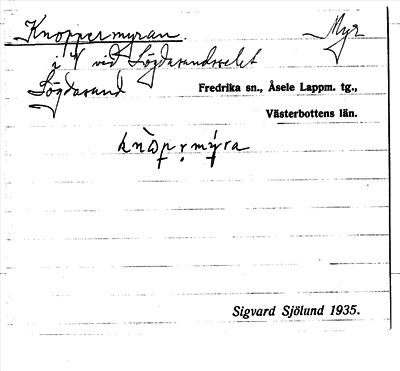 Knoppermyran. Myr
i V vid Lögdasundsselet
Lögdasund Fredrika sn., Åsele Lappm. tg.,
Västerbottens län.
Sigvard Sjölund 1935.